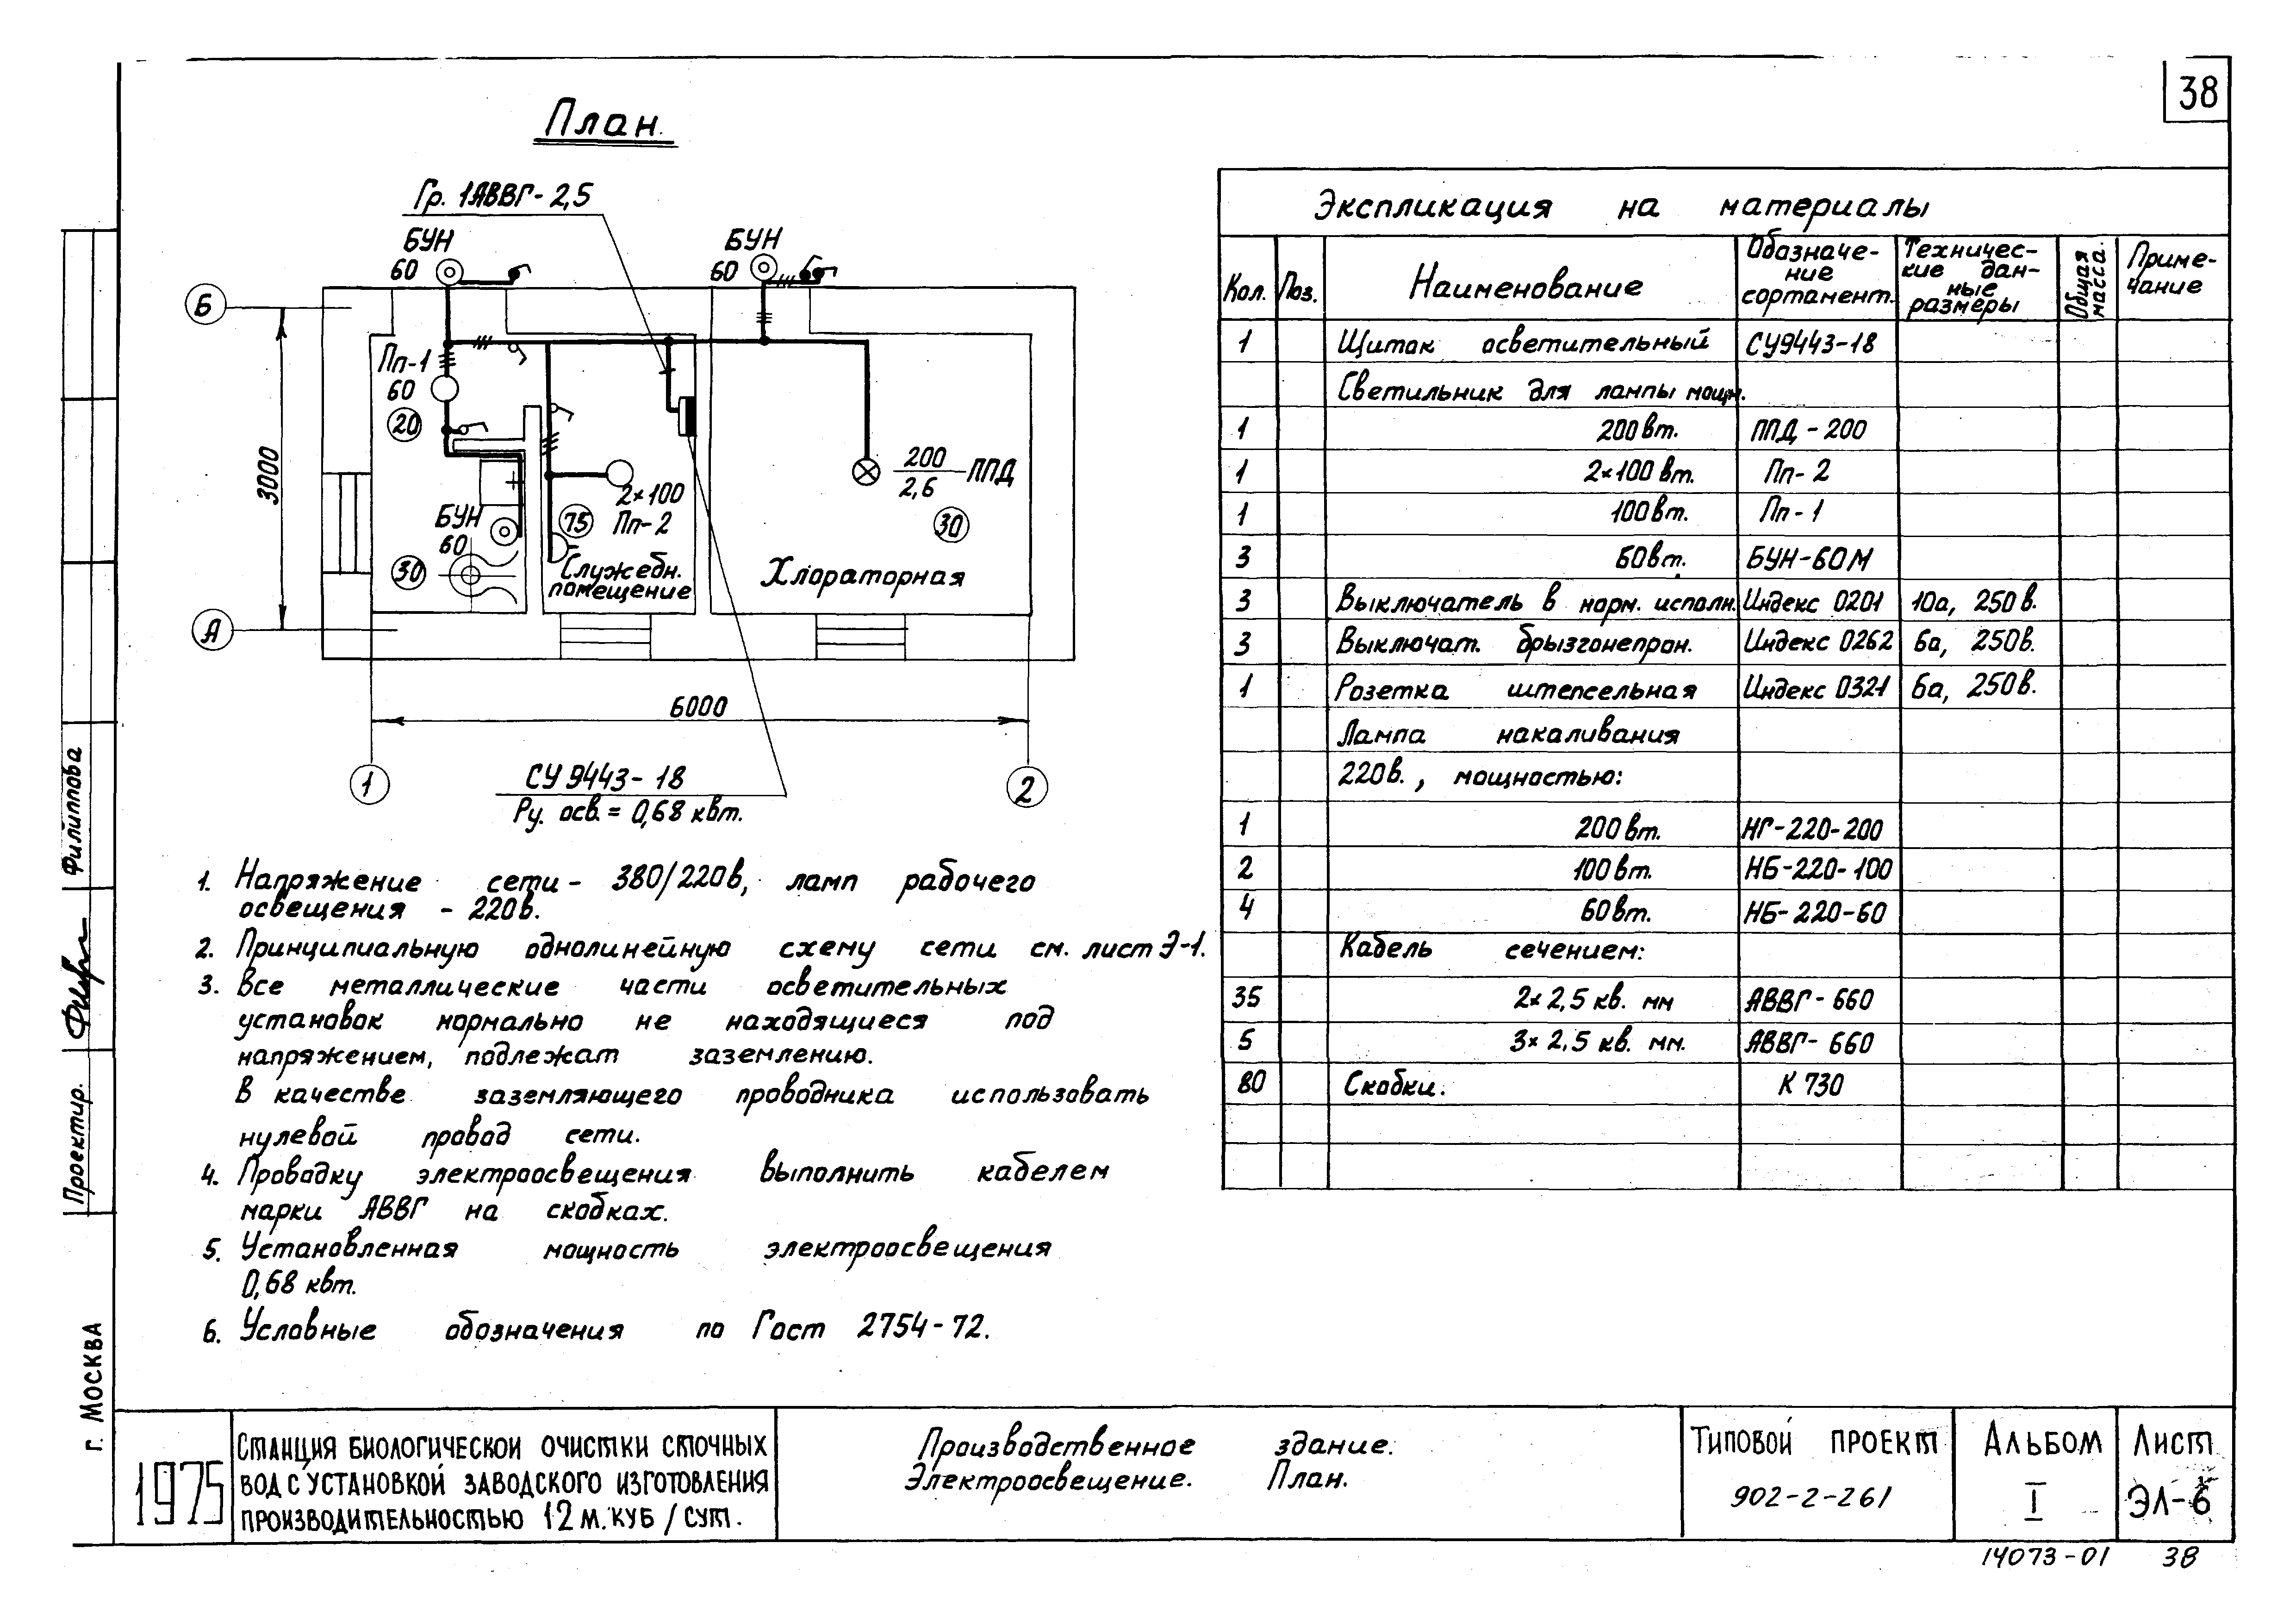 38
План.
Гр. 1АВВГ-2,5
БУН
60
БУН
60
Б
Пп-1
60
20
3000
200
2,6
ППД
2×100
Пп-2
БУН
60
75
30
30
Служебн.
помещение
Хлораторная
А
6000
1
2
СУ 9443-18
Ру. осв. = 0,68 квт.
1. Напряжение сети - 380/220в, ламп рабочего
освещения - 220в.
2. Принципиальную однолинейную схему сети см. лист Э-1.
3. Все металлические части осветительных
установок нормально не находящиеся под
напряжением, подлежат заземлению.
В качестве заземляющего проводника использовать
нулевой провод сети.
4. Проводку электроосвещения выполнить кабелем
марки АВВГ на скобках.
5. Установленная мощность электроосвещения
0,68 квт.
6. Условные обозначения по Гост 2754-72.
Экспликация на материалы
Кол. Поз. Наименование Обозначе-ние сортамент. Техничес-кие дан-ные размеры Общая масса. Приме-чание
1 Щиток осветительный СУ9443-18
Светильник для лампы мощн.
1 200 вт. ППД-200
1 2×100 вт. Пп-2
1 100 вт. Пп-1
3 60 вт. БУН-60М
3 Выключатель в норм. исполн. Индекс 0201 10а, 250в.
3 Выключат. брызгонепрон. Индекс 0262 6а, 250в.
1 Розетка штепсельная Индекс 0321 6а, 250в.
Лампа накаливания
220в., мощностью:
1 200 вт. НГ-220-200
2 100 вт. НБ-220-100
4 60 вт. НБ-220-60
Кабель сечением:
35 2×2,5 кв. мм АВВГ-660
5 3×2,5 кв. мм. АВВГ-660
80 Скобки. К 730
Филиппова
Проектир.
г. Москва
1975
Станция биологической очистки сточных
вод с установкой заводского изготовления
производительностью 12 м.куб/сут.
Производственное здание.
Электроосвещение. План.
Типовой проект
902-2-261
Альбом
I
Лист
ЭЛ-6
14073-01 38